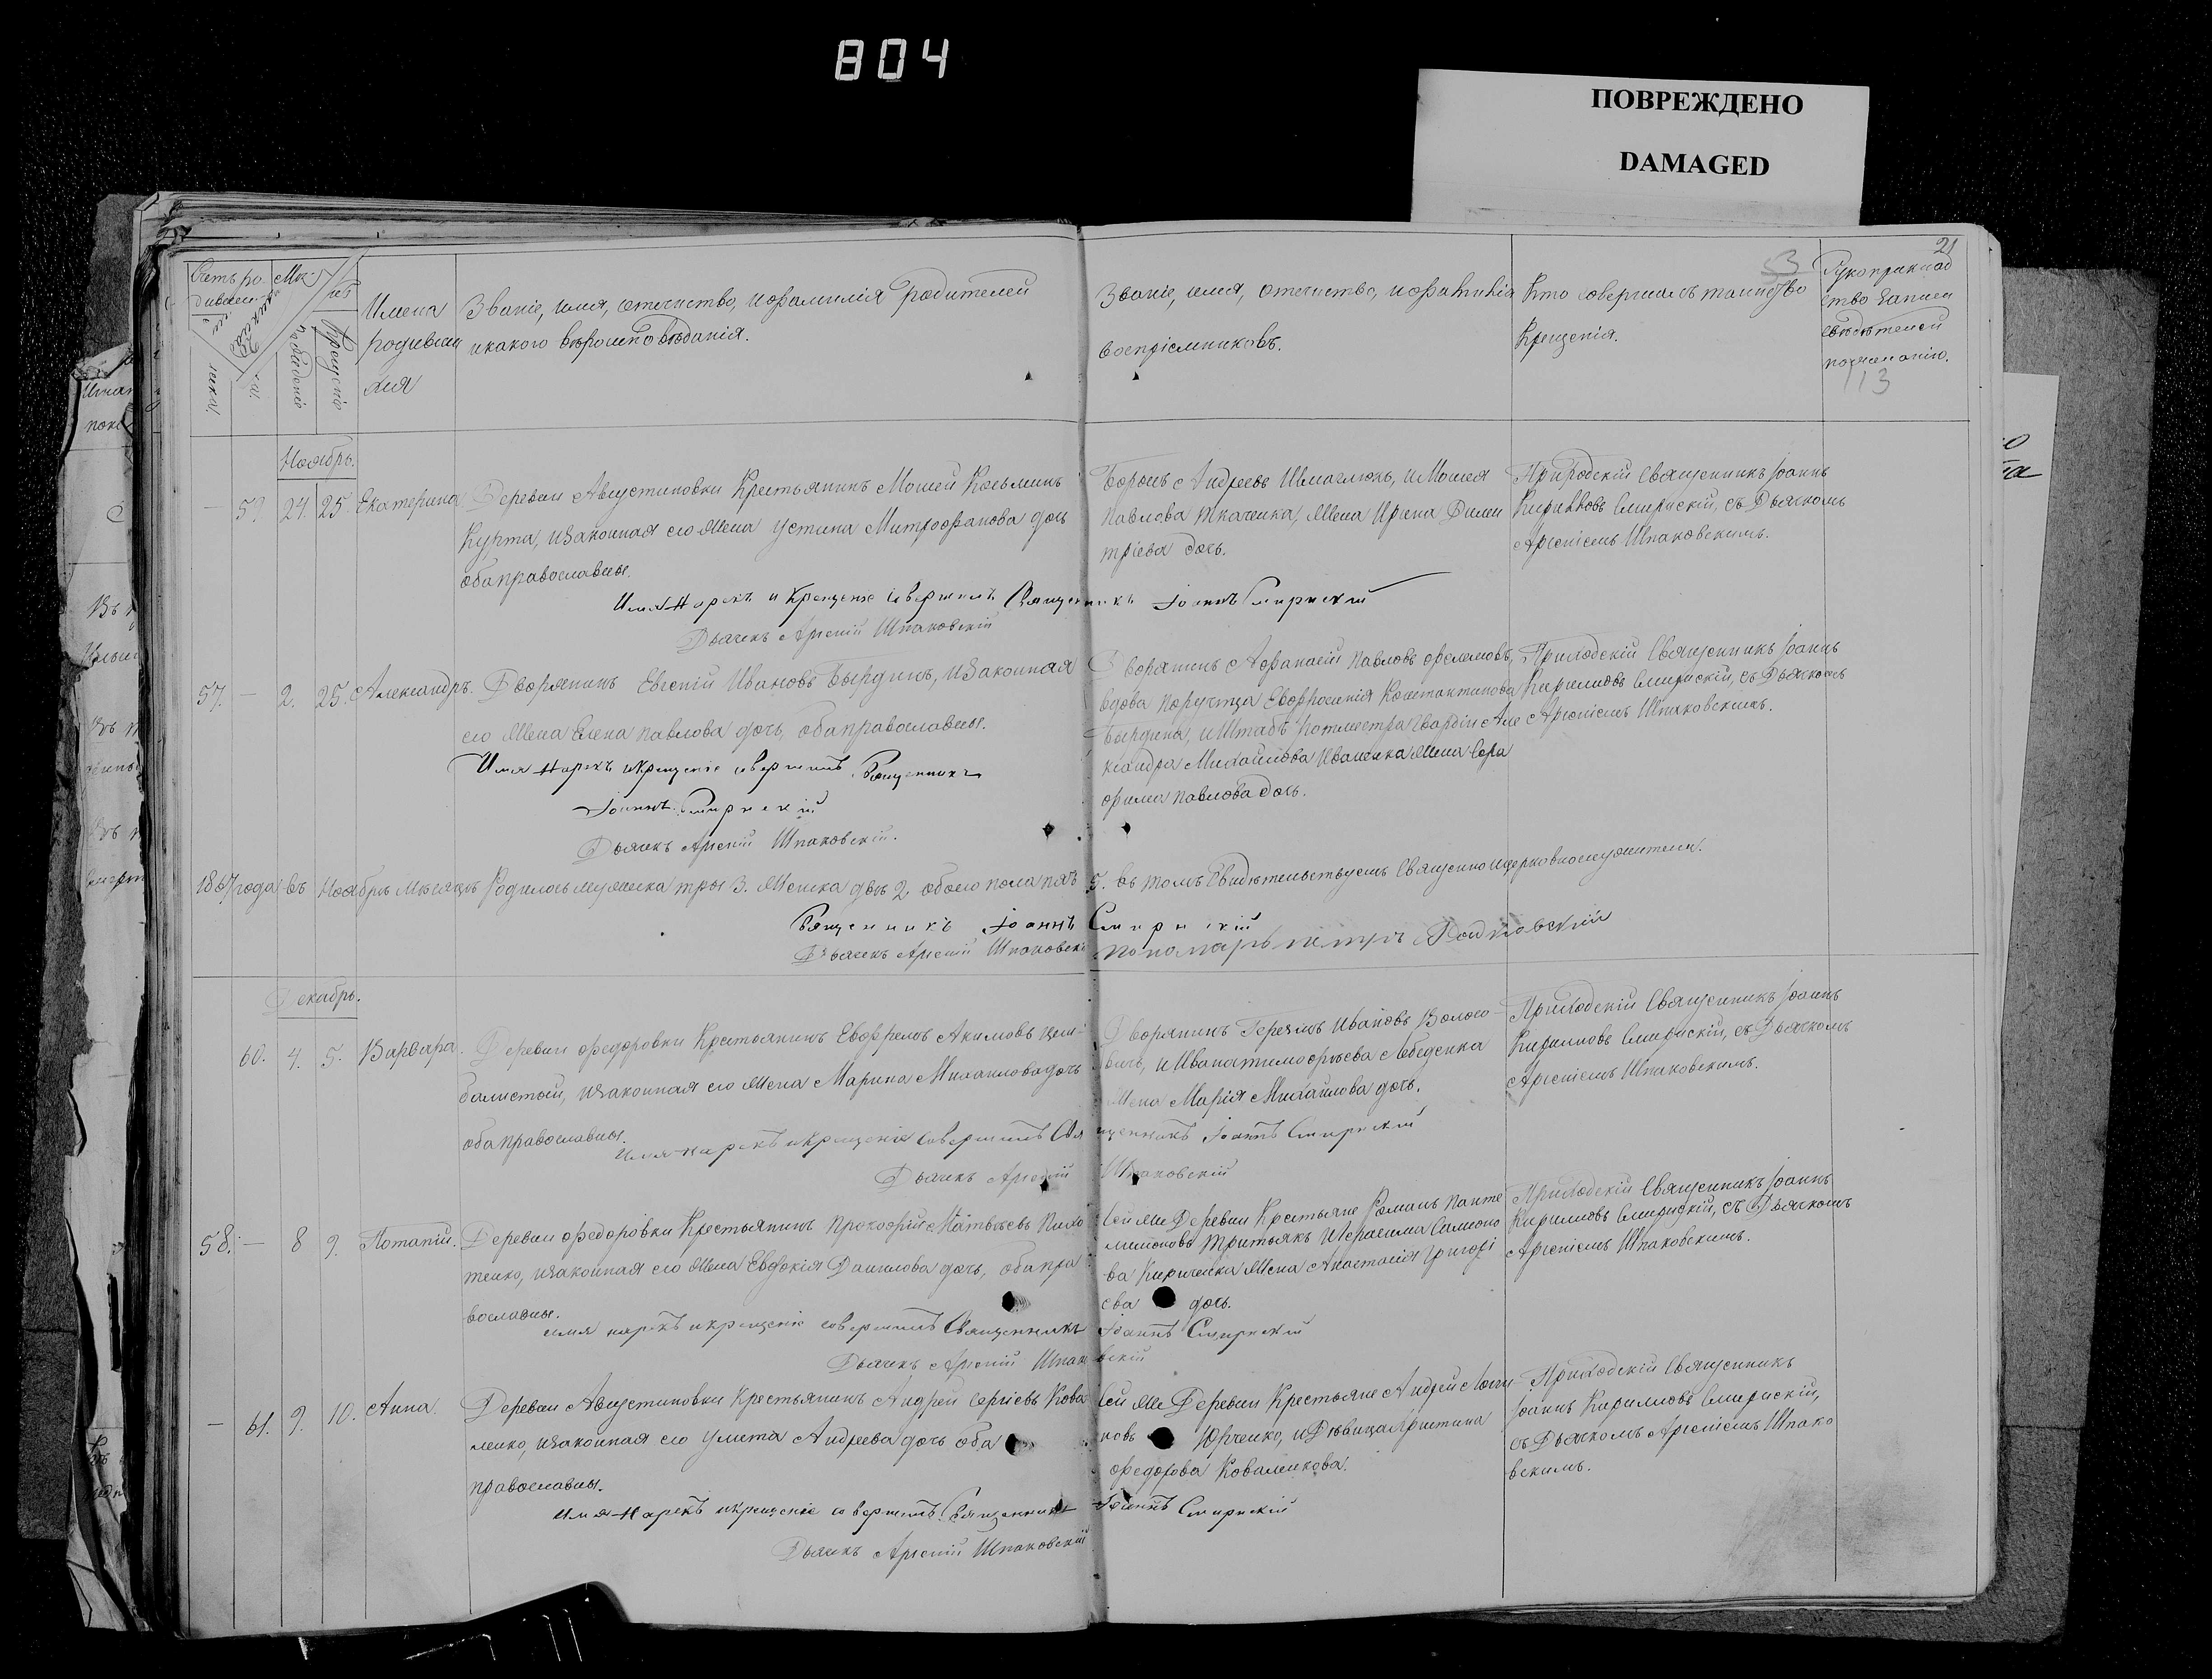 804
ПОВРЕЖДЕНО
DAMAGED
21
53
Счетъ ро
Имена
родивши
мся
Званіе, имя, отчество, и фамилія родителей
и какого вѣроисповѣданія.
Званіе, имя, отечество, и фамилія
воспріемниковъ.
Кто совершалъ таинство
Крещенія.
Рукоприклад
ство записи
свѣдѣтелей
по желанію.
113
рожденіе
Крещеніе
Ноябрь.
— 59 24. 25. Екатерина
Деревни Августиновки Крестьянинъ Мосей Косьминъ
Курта, и законная его жена Устина Митрофанова дочь
оба православны.
Павлова Ткаченка, жена Ирина Дими
тріева дочь.
Приходскій Священникъ Іоаннъ
Кирилловъ Смирнскій, съ Дьячкомъ
Арсеніемъ Шпаковскимъ.
Имя Нарекъ и Крещеніе совершилъ Священникъ Іоаннъ Смирнскій
Дьячекъ Арсеній Шпаковскій
57. — 2. 25. Александръ.
Дворянинъ Евгеній Ивановъ Бырдинъ, и законная
его жена Елена Павлова дочь, оба православны.
Дворянинъ Афанасій Павловъ
вдова Поручица Евфросинія Константинова
Бырдина, и Штабъ Ротмистра Гвардіи Але
ксандра Михайлова Иваненка жена Сера
фима Павлова дочь.
Приходскій Священникъ Іоаннъ
Кирилловъ Смирнскій, съ Дьячкомъ
Арсеніемъ Шпаковскимъ.
Имя Нарекъ и Крещеніе совершилъ Священникъ
Іоаннъ Смирнскій
Дьячекъ Арсеній Шпаковскій.
1867 года въ Ноябрѣ Мѣсяцѣ Родилось мужеска три 3. Женска двѣ 2. обоего пола пять 5. въ томъ Свидѣтельствуемъ Священноцерковнослужители.
Священникъ Іоаннъ Смирнскій
Дьячекъ Арсеній Шпаковскій Пономарь Петръ
Декабрь.
60. 4. 5. Варвара.
Деревни Федоровки Крестьянинъ Евфремъ Акимовъ Цим-
балистый, и законная его жена Марина Михайлова дочь
оба православны.
Дворянинъ Герасимъ Ивановъ Волого-
вичъ, и Ивана Тимофѣева Лебеденка
Жена Марія Михайлова дочь.
Приходскій Священникъ Іоаннъ
Кирилловъ Смирнскій, съ Дьячкомъ
Арсеніемъ Шпаковскимъ.
Имя нарекъ и крещеніе совершилъ Священникъ Іоаннъ Смирнскій
Дьячекъ Арсеній Шпаковскій
58. — 8 9. Потапій.
Деревни Федоровки Крестьянинъ Прокофій Матвѣевъ Пихо
тенко, и законная его жена Евдокія Данилова дочь, оба пра
вославны.
Сей же Деревни Крестьяне Романъ Панте
лимоновъ Третьякъ и Герасима Самсоно
ва Кириченка жена Анастасія Григорі
ева дочь.
Приходскій Священникъ Іоаннъ
Кирилловъ Смирнскій, съ Дьячкомъ
Арсеніемъ Шпаковскимъ.
имя нарекъ и крещеніе совершилъ Священникъ Іоаннъ Смирнскій
Дьячекъ Арсеній Шпаковскій
— 61. 9. 10. Анна.
Деревни Августиновки Крестьянинъ Андрей Сергіевъ Кова
ленко, и законная его Улита Андреева дочь оба
православны.
Сей же Деревни Крестьяне Андрей Логи
новъ Юрченко, и Дѣвица Христина
Федорова Коваленкова.
Приходскій Священникъ
Іоаннъ Кирилловъ Смирнскій,
съ Дьячкомъ Арсеніемъ Шпако
вскимъ.
Имя Нарекъ и крещеніе совершилъ Священникъ Іоаннъ Смирнскій
Дьячекъ Арсеній Шпаковскій